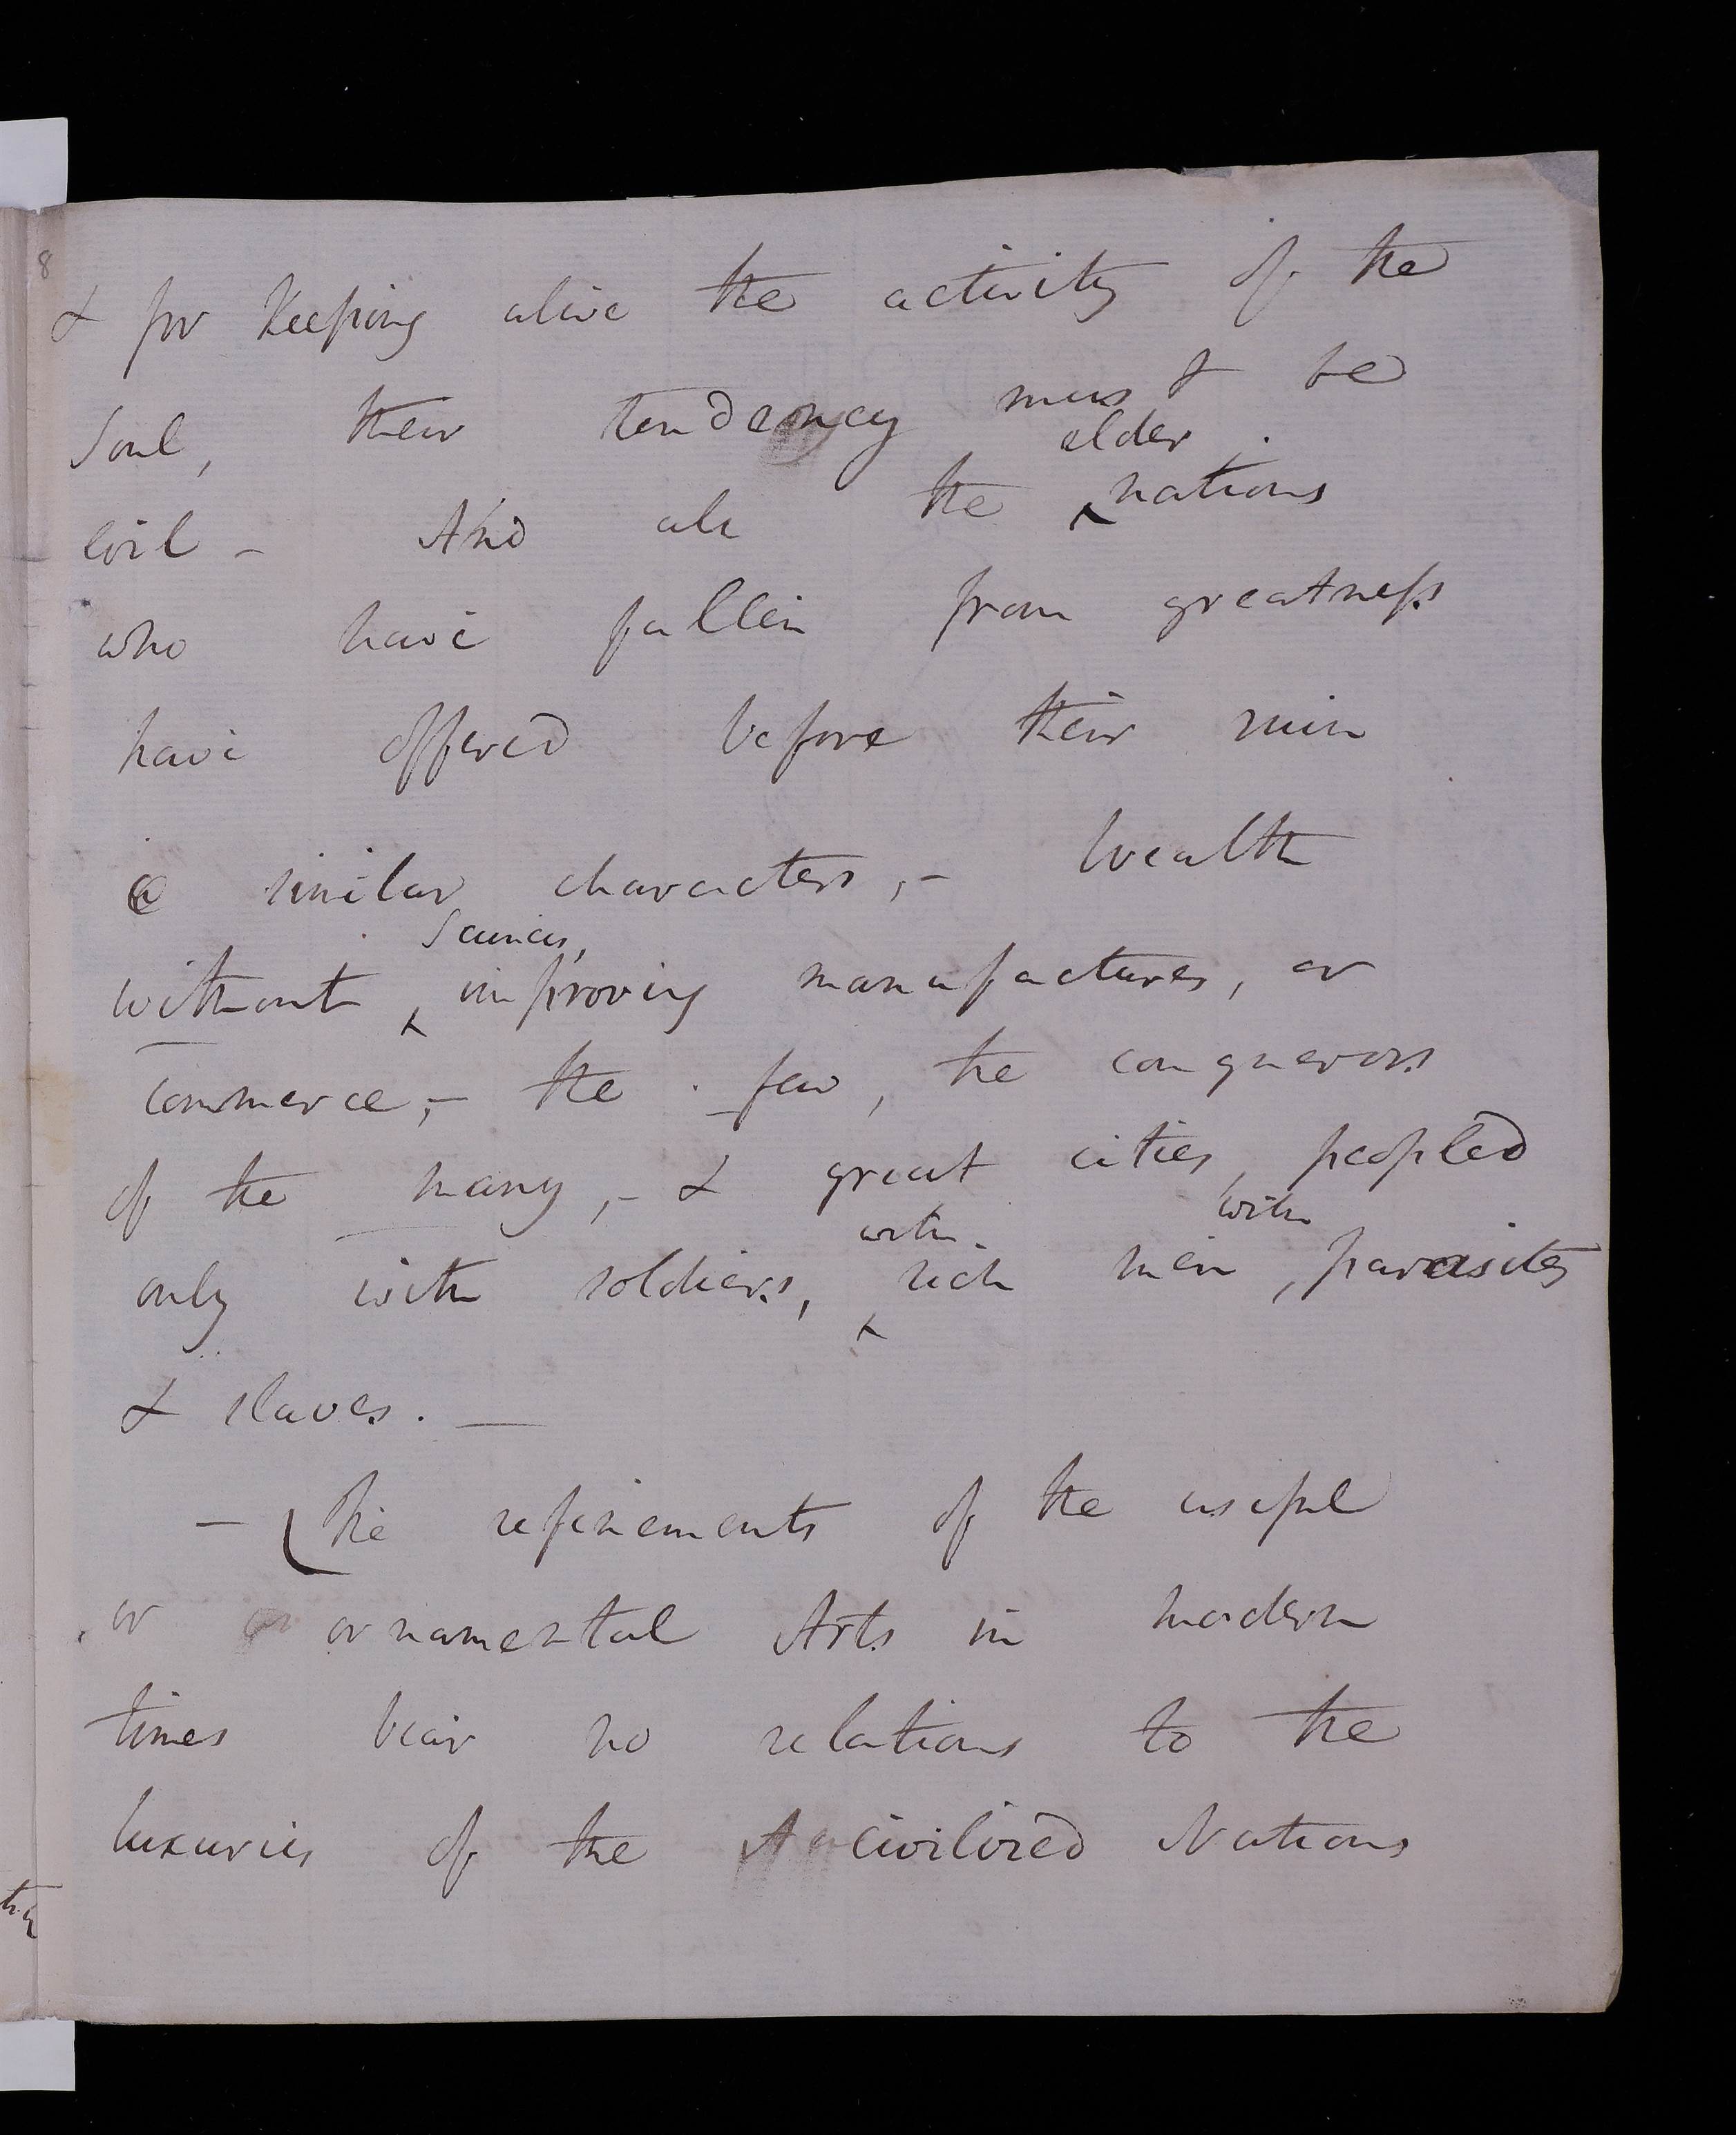 8
& for keeping alive the activity of the
Soul, their tendency must be
elder
evil – And all the ^ nations
who have fallen from greatness
have offered before their ruin
a similar characters, – Wealth
Sciences,
without ^ improving manufactures, or
commerce, – the few, the conquerors
of the many, – & great cities, peopled
with with
only with soldiers, ^ rich men, parasites
& slaves. –
– (The refinements of the useful
or ornamental Arts in modern
times bear no relations to the
luxuries of the civilized Nations